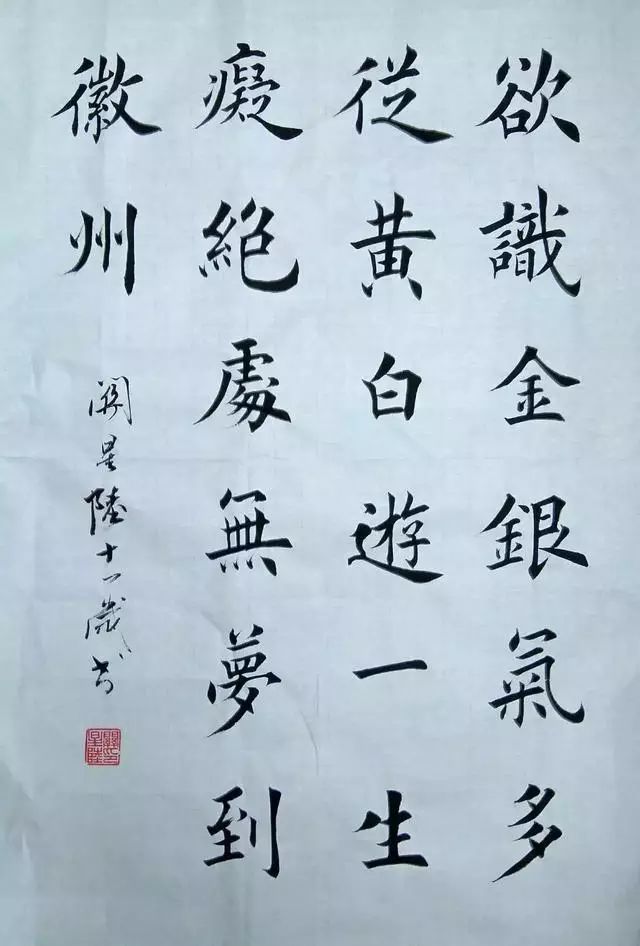 欲識金銀氣多
從黄白遊一生
癡絶處無夢到
徽州
關星陸十一歲書